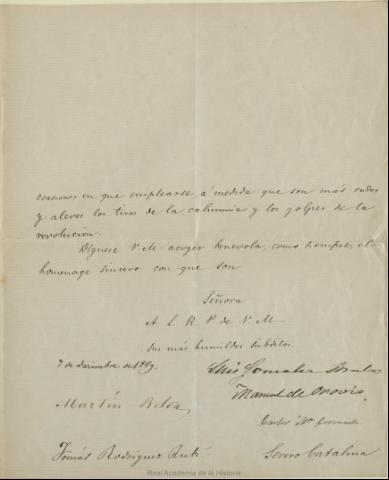 ocasiones en que emplearse, á medida que son más rudos
y aleves los tiros de la calumnia y los golpes de la
revolucion.
Dígnese V. M. acoger benévola, como siempre, el
homenage sincero con que son
Señora
A L R P de V. M.
sus más humildes súbditos.
7 de diciembre de 1869.
Luis Gonzalez Brabo
Manuel de Orovio
Martín Belda
Carlos Mª Coronado
Tomás Rodriguez Rubí
Severo Catalina
Real Academia de la Historia